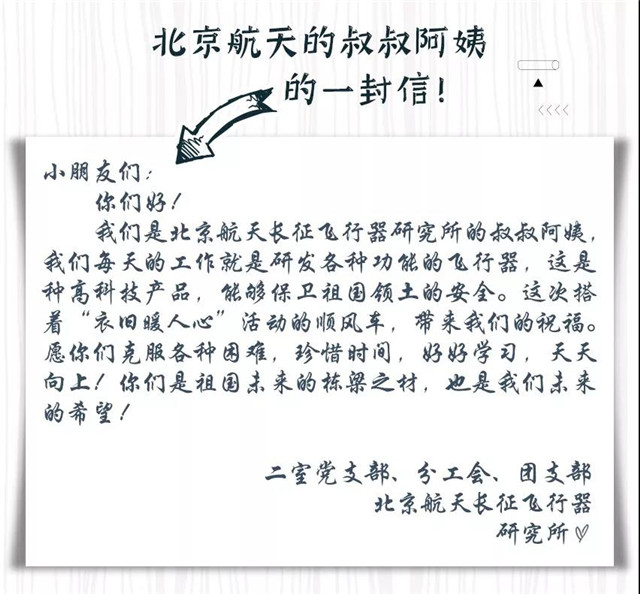 北京航天的叔叔阿姨
的一封信！
小朋友们：
你们好！
我们是北京航天长征飞行器研究所的叔叔阿姨，
我们每天的工作就是研发各种功能的飞行器，这是
种高科技产品，能够保卫祖国领土的安全。这次搭
着“衣旧暖人心”活动的顺风车，带来我们的祝福。
愿你们克服各种困难，珍惜时间，好好学习，天天
向上！你们是祖国未来的栋梁之材，也是我们未来
的希望！
二室党支部、分工会、团支部
北京航天长征飞行器
研究所